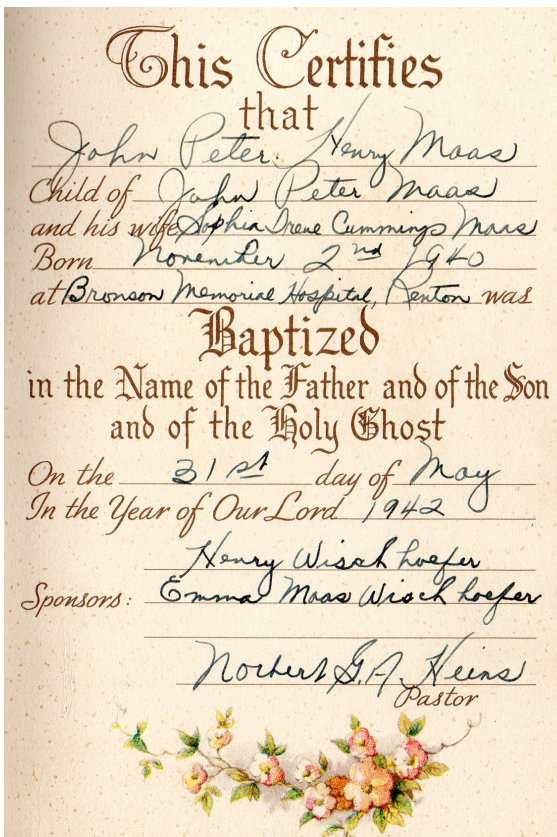 This Certifies
that
John Peter Henry Maas
Child of John Peter Maas
and his wife Sophia Irene Cummings Maas
Born November 2nd 1940
at Bronson Memorial Hospital, Renton was
Baptized
in the Name of the Father and of the Son
and of the Holy Ghost
On the 31st day of May
In the Year of Our Lord 1942
Henry Wischhoefer
Sponsors: Emma Maas Wischhoefer
Norbert G. A. Heins
Pastor